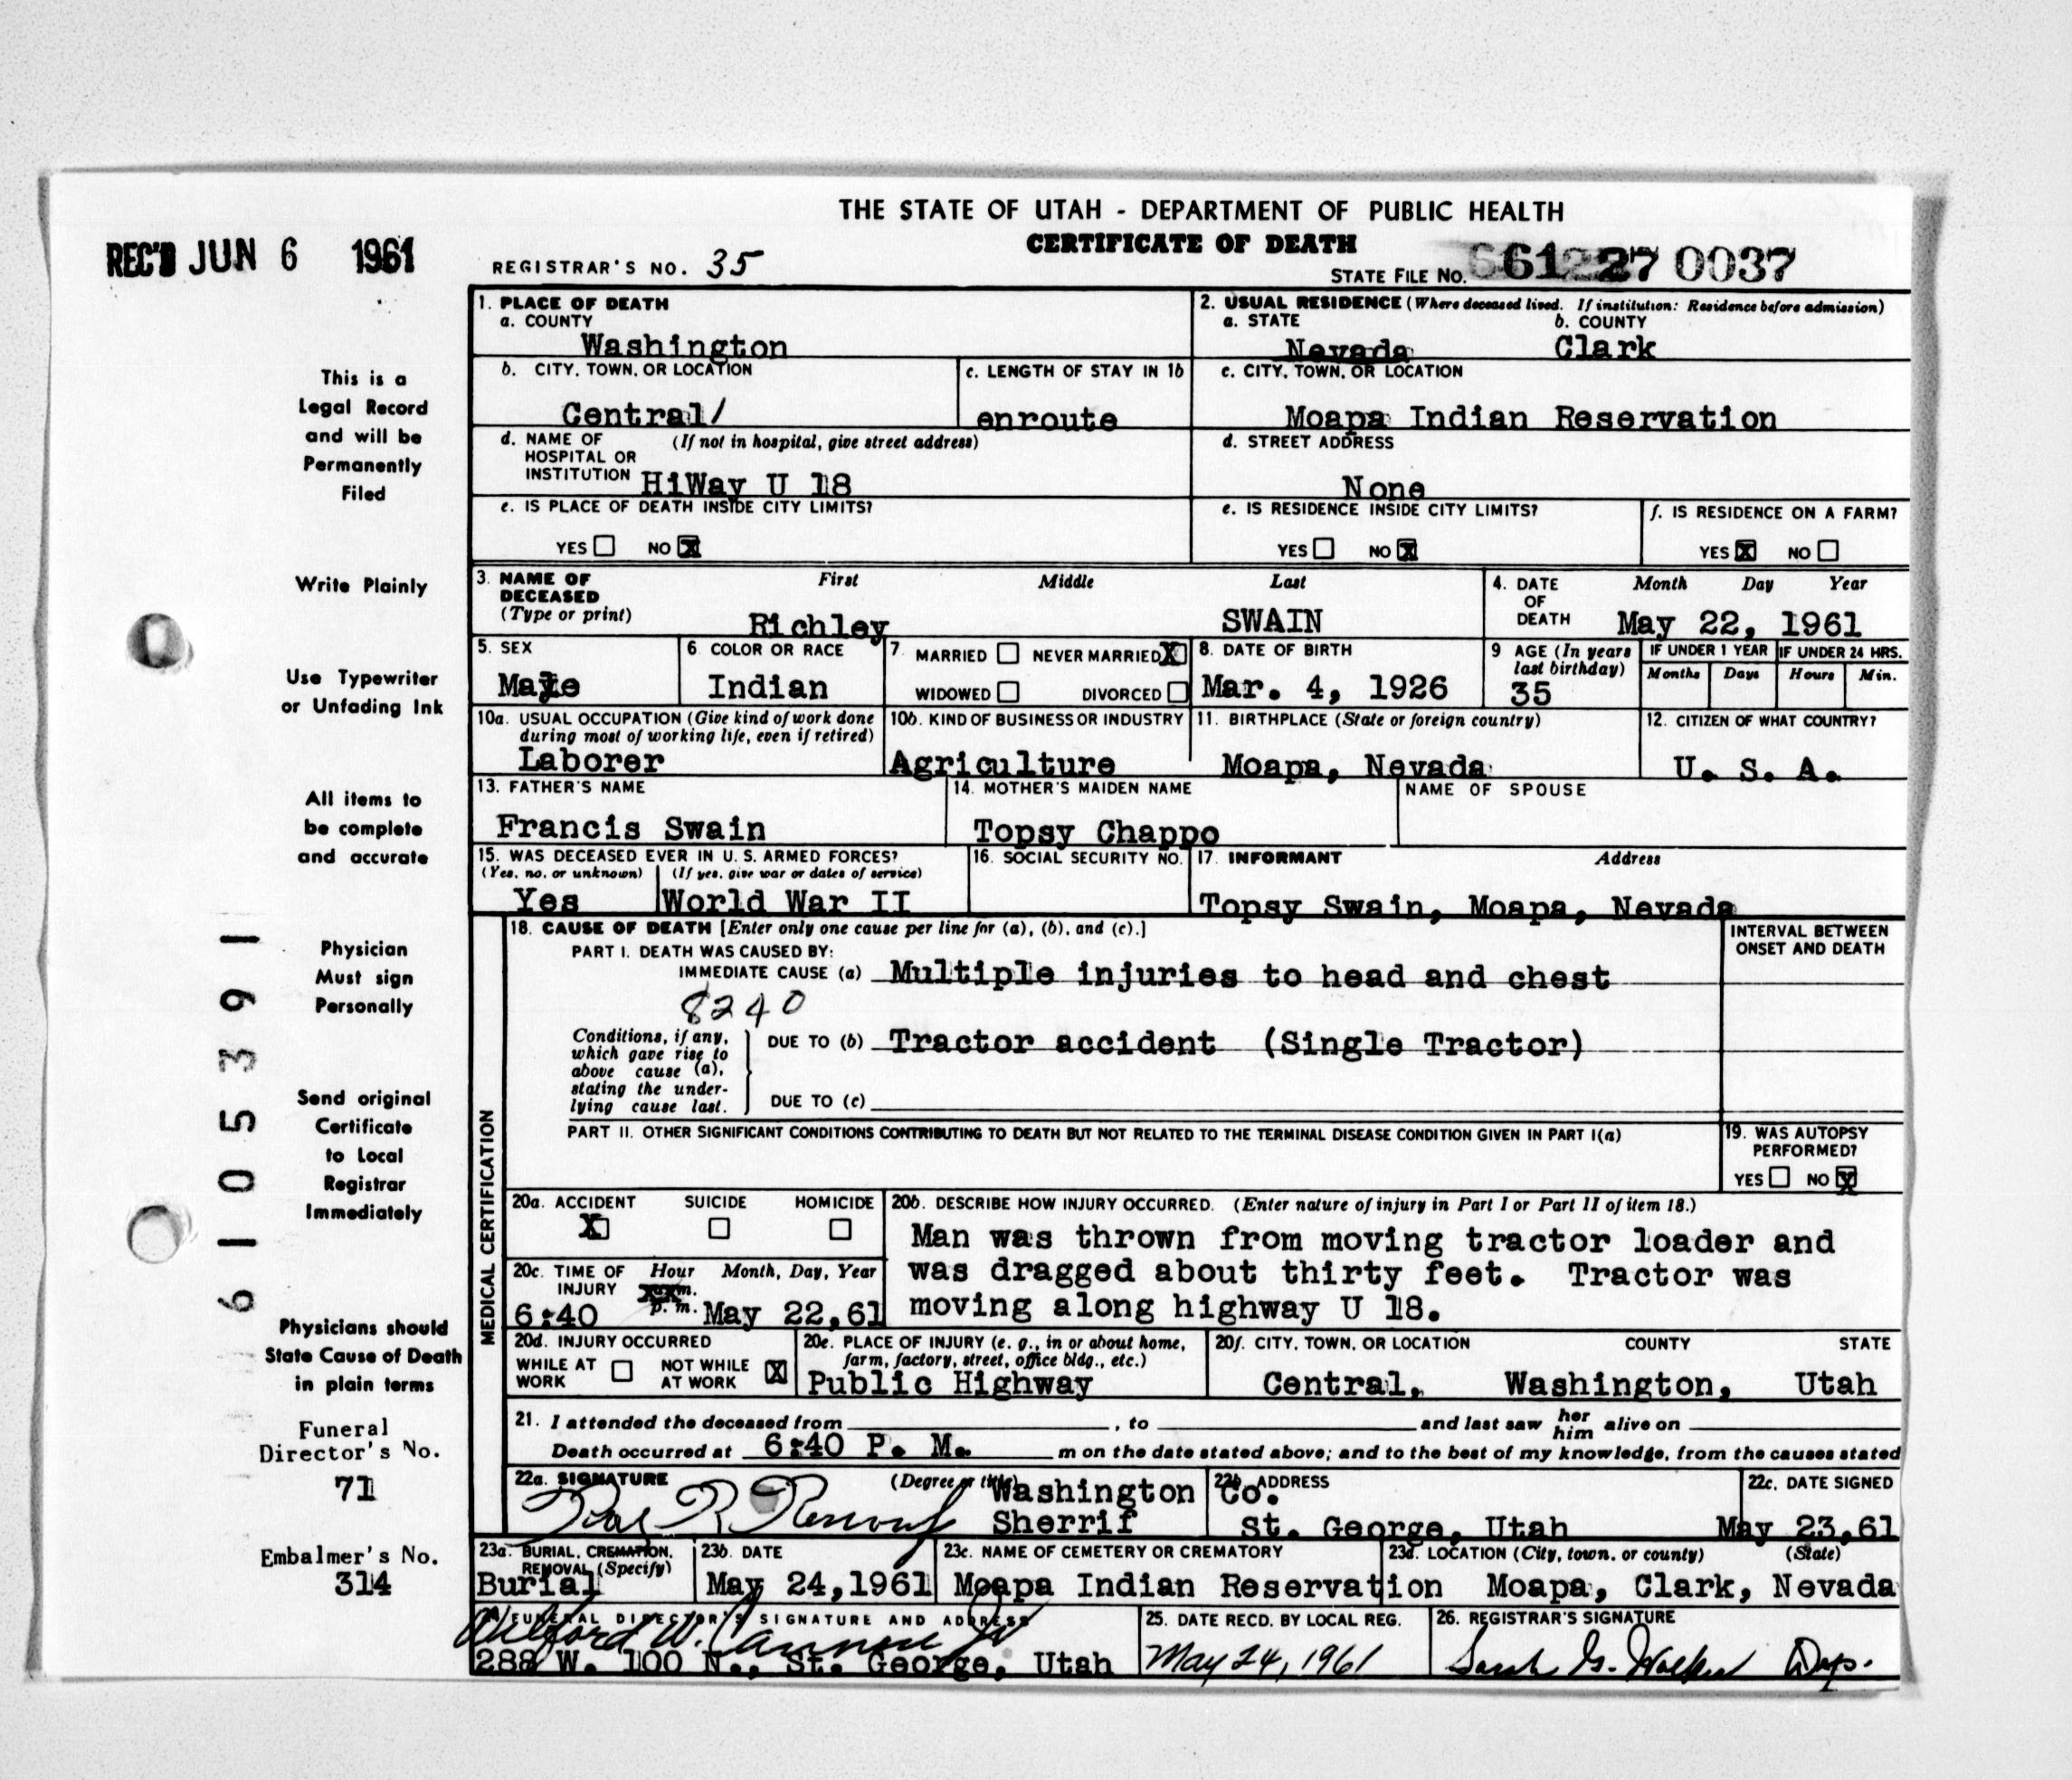 THE STATE OF UTAH - DEPARTMENT OF PUBLIC HEALTH
CERTIFICATE OF DEATH
REC'D JUN 6 1961
REGISTRAR'S NO. 35
STATE FILE NO. 27 0037
1. PLACE OF DEATH
a. COUNTY
Washington
2. USUAL RESIDENCE (Where deceased lived. If institution: Residence before admission)
a. STATE b. COUNTY
Nevada Clark
b. CITY, TOWN, OR LOCATION
Central/
c. LENGTH OF STAY IN 1b
enroute
c. CITY, TOWN, OR LOCATION
Moapa Indian Reservation
d. NAME OF (If not in hospital, give street address)
HOSPITAL OR
INSTITUTION HiWay U 18
d. STREET ADDRESS
None
e. IS PLACE OF DEATH INSIDE CITY LIMITS?
YES NO X
e. IS RESIDENCE INSIDE CITY LIMITS?
YES NO X
f. IS RESIDENCE ON A FARM?
YES X NO
3. NAME OF First Middle Last
DECEASED
(Type or print) Richley SWAIN
4. DATE Month Day Year
OF
DEATH May 22, 1961
5. SEX
Male
6 COLOR OR RACE
Indian
7. MARRIED NEVER MARRIED X
WIDOWED DIVORCED
8. DATE OF BIRTH
Mar. 4, 1926
9 AGE (In years
last birthday)
35
IF UNDER 1 YEAR IF UNDER 24 HRS.
Months Days Hours Min.
10a. USUAL OCCUPATION (Give kind of work done
during most of working life, even if retired)
Laborer
10b. KIND OF BUSINESS OR INDUSTRY
Agriculture
11. BIRTHPLACE (State or foreign country)
Moapa, Nevada
12. CITIZEN OF WHAT COUNTRY?
U. S. A.
13. FATHER'S NAME
Francis Swain
14. MOTHER'S MAIDEN NAME
Topsy Chappo
NAME OF SPOUSE
15. WAS DECEASED EVER IN U. S. ARMED FORCES?
(Yes, no, or unknown) (If yes, give war or dates of service)
Yes World War II
16. SOCIAL SECURITY NO.
17. INFORMANT Address
Topsy Swain, Moapa, Nevada
18. CAUSE OF DEATH [Enter only one cause per line for (a), (b), and (c).]
INTERVAL BETWEEN
ONSET AND DEATH
PART I. DEATH WAS CAUSED BY:
IMMEDIATE CAUSE (a) Multiple injuries to head and chest
8240
Conditions, if any,
which gave rise to
above cause (a),
stating the under-
lying cause last.
DUE TO (b) Tractor accident (Single Tractor)
DUE TO (c)
PART II. OTHER SIGNIFICANT CONDITIONS CONTRIBUTING TO DEATH BUT NOT RELATED TO THE TERMINAL DISEASE CONDITION GIVEN IN PART I(a)
19. WAS AUTOPSY
PERFORMED?
YES NO X
MEDICAL CERTIFICATION
20a. ACCIDENT SUICIDE HOMICIDE
X
20b. DESCRIBE HOW INJURY OCCURRED. (Enter nature of injury in Part I or Part II of item 18.)
Man was thrown from moving tractor loader and
was dragged about thirty feet. Tractor was
moving along highway U 18.
20c. TIME OF Hour Month, Day, Year
INJURY
6:40 p. m. May 22,61
20d. INJURY OCCURRED
WHILE AT WORK NOT WHILE AT WORK X
20e. PLACE OF INJURY (e. g., in or about home,
farm, factory, street, office bldg., etc.)
Public Highway
20f. CITY, TOWN, OR LOCATION COUNTY STATE
Central, Washington, Utah
21. I attended the deceased from , to and last saw her him alive on
Death occurred at 6:40 P. M. m on the date stated above; and to the best of my knowledge, from the causes stated
22a. SIGNATURE (Degree or title)
R
Washington Co.
Sherrif
22b. ADDRESS
St. George, Utah
22c. DATE SIGNED
May 23,61
23a. BURIAL, CREMATION,
REMOVAL (Specify)
Burial
23b. DATE
May 24,1961
23c. NAME OF CEMETERY OR CREMATORY
Moapa Indian Reservation
23d. LOCATION (City, town, or county) (State)
Moapa, Clark, Nevada
FUNERAL DIRECTOR'S SIGNATURE AND ADDRESS
Wilford W. Cannon Jr
288 W. 100 N., St. George, Utah
25. DATE RECD. BY LOCAL REG.
May 24, 1961
26. REGISTRAR'S SIGNATURE
Sarah G. Walker Dep.
This is a
Legal Record
and will be
Permanently
Filed
Write Plainly
Use Typewriter
or Unfading Ink
All items to
be complete
and accurate
Physician
Must sign
Personally
Send original
Certificate
to Local
Registrar
Immediately
Physicians should
State Cause of Death
in plain terms
Funeral
Director's No.
71
Embalmer's No.
314
6105391